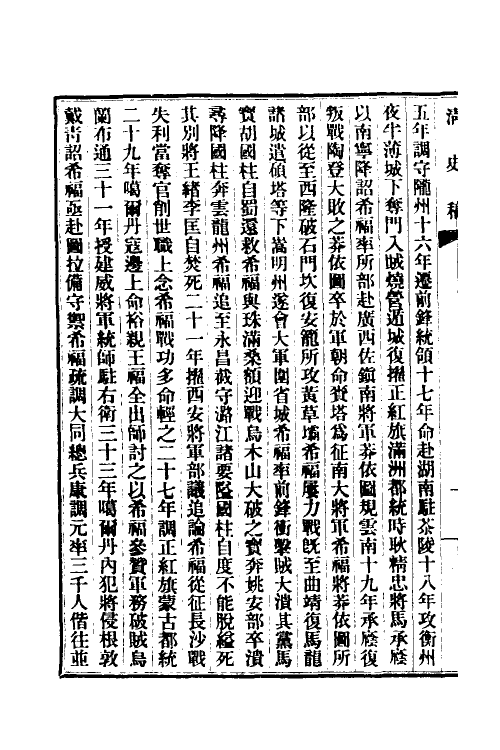 清史稿
五年調守隴州十六年遷前鋒統領十七年命赴湖南駐茶陵十八年攻衡州
夜半薄城下奪門入賊燒營遁城復擢正紅旗滿洲都統時耿精忠將馬承廕
以南寧降詔希福率所部赴廣西佐鎮南將軍莽依圖規雲南十九年承廕復
叛戰陶登大敗之莽依圖卒於軍朝命賚塔爲征南大將軍希福將莽依圖所
部以從至西隆破石門坎復安籠所攻黃草壩希福屢力戰旣至曲靖復馬龍
諸城遣碩塔等下嵩明州遂會大軍圍省城希福率前鋒衝擊賊大潰其黨馬
寶胡國柱自蜀還救希福與珠滿桑額迎戰烏木山大破之寶奔姚安部卒潰
尋降國柱奔雲龍州希福追至永昌截守潞江諸要隘國柱自度不能脫縊死
其別將王緒李匡自焚死二十一年擢西安將軍部議追論希福從征長沙戰
失利當奪官削世職上念希福戰功多命輕之二十七年調正紅旗蒙古都統
二十九年噶爾丹寇邊上命裕親王福全出師討之以希福參贊軍務破賊烏
蘭布通三十一年授建威將軍統師駐右衛三十三年噶爾丹內犯將侵根敦
戴青詔希福亟赴圖拉備守禦希福疏調大同總兵康調元率三千人偕往並